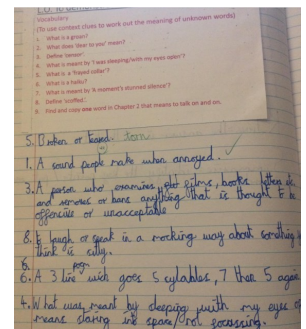 Vocabulary
(To use context clues to work out the meaning of unknown words)
1. What is a groan?
2. What does 'dear to you' mean?
3. Define 'censor'.
4. What is meant by 'I was sleeping/with my eyes open'?
5. What is a 'frayed collar'?
6. What is a haiku?
7. What is meant by 'A moment's stunned silence'?
8. Define 'scoffed'.
9. Find and copy one word in Chapter 2 that means to talk on and on.
5. torn
1. A sound people make when annoyed.
3. A person who examines films, books, letters
and removes or bans anything that is thought to be
offensive or unacceptable
8. laugh or speak in a mocking way about something
think is silly.
6. poem
6. A 3 line wich goes 5 sylables, 7 then 5 again
4. What was meant by sleeping with my eyes
means staring into space/not focussing.